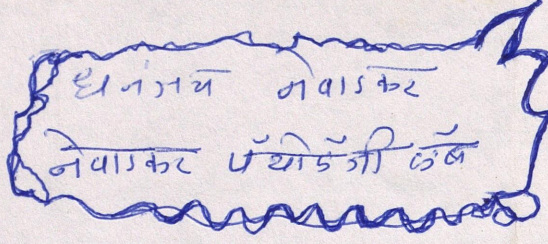 धनंजय नेवाडकर
नेवाडकर पॅथोलॅजी लॅब